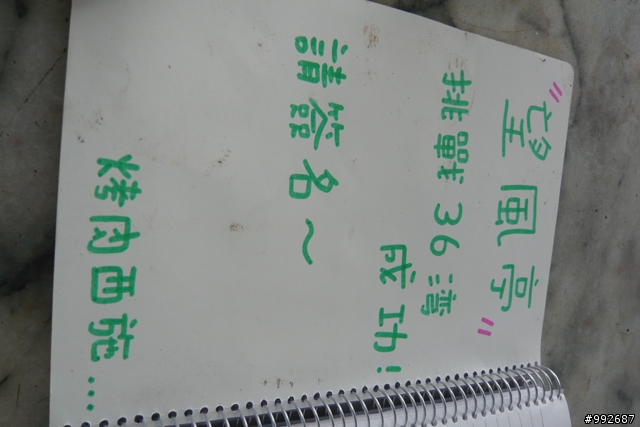 "望風亭"
挑戰36灣
成功!
請簽名~
烤肉西施...
#992687